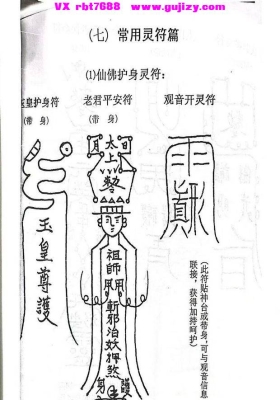 VX rbt7688 www.gujizy.com
(七) 常用灵符篇
(1)仙佛护身灵符:
玉皇护身符 老君平安符 观音开灵符
(带身) (带身)
玉皇尊護
日 太上 月
勅
祖師
斬邪治妖押煞
(此符贴神台或带身,可与观音信息
联接,获得加持呵护)